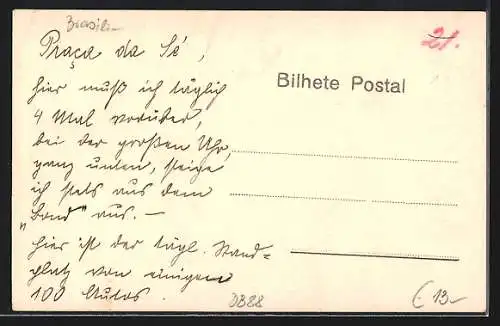 Brasilien
21.
Praça da Sé,
hier muß ich täglich
4 Mal vorüber,
bei der großen Uhr,
ganz unten, steige
ich stets aus dem
„Bond" aus. —
hier ist der tägl. Stand=
platz von einigen
100 Autos.
Bilhete Postal
DB88
€ 13-